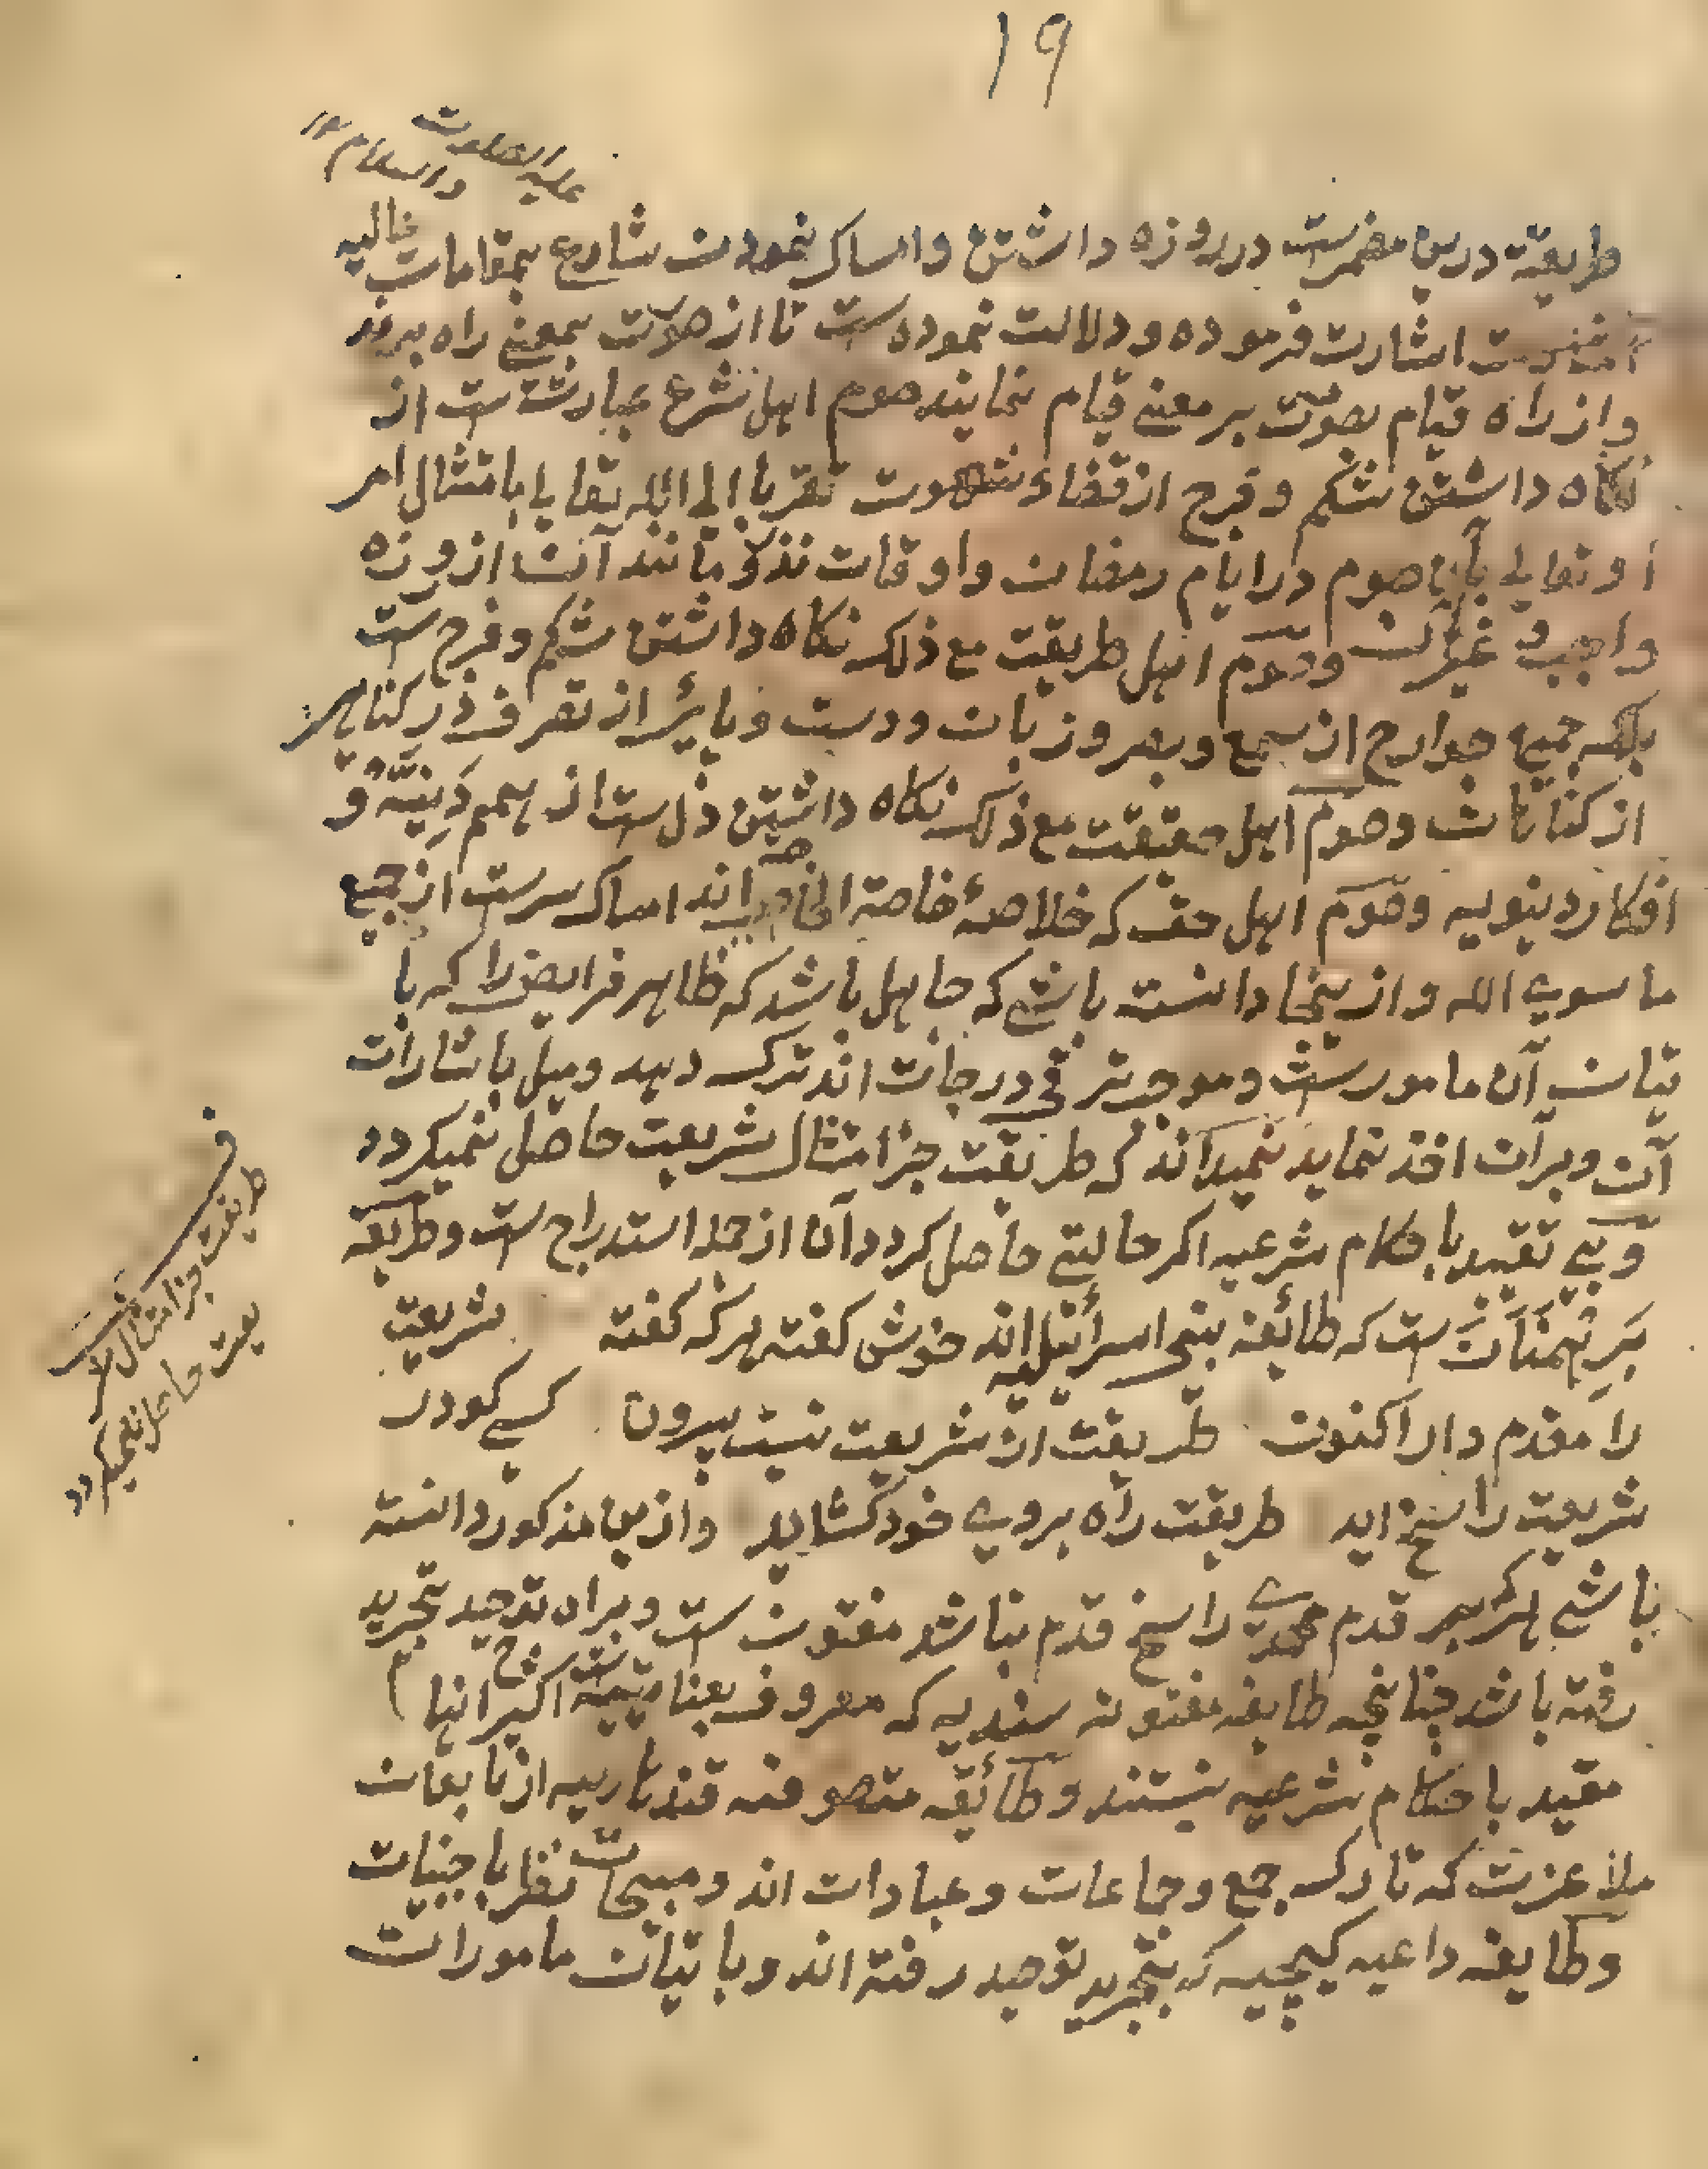 ۱۹
علیه الصلوت
والسلام ۱۲
طریقة درین مضمرست در روزه داشتن وامساک نمودن شارع بمقامات عالیه
اشارت فرموده ودلالت نموده ست تا از صورت بمعنے راه برند
واز راه قیام بصورت بر معنے قیام نمایند صوم اہل شرع عبارتست از
نکاه داشتن شکم و فرج از قضاء شهوت تقربا الی الله تعالی بامتثال امر
او تعالی بآن صوم در ایام رمضان واوقات نذر ومانند آن از روزه
واجب وغیر آن وصوم اہل طریقت مع ذلک نکاه داشتن شکم وفرج ست
بلکہ جمیع جوارح از سمع وبصر وزبان ودست وپائے از تصرف در کناہے
از کناہان وصوم اہل حقیقت مع ذلک نکاه داشتن دل ست از ہمم دَنِیَّه و
افکار دینویہ وصوم اہل حق کہ خلاصۂ خاصة الخاصه اند امساک سرست از جمیع
ما سوی الله واز ینجا دانسته باشے کہ جاہل باشد کہ ظاہر فرایض را کہ با
تیان آن مامورست وموجب ترقی درجات اند ترک دہد ومیل باشارات
آن وبران اخذ نماید نمیداند کہ طریقت جز امتثال شریعت حاصل نمیکردد
وبے تقید باحکام شرعیہ اکر حالتے حاصل کردد آن از جملہ استدراج ست وطریقہ
بَرہمنان ست کہ طائفہ بنی اسرائیلیه اند خوش کفتہ ہرکہ کفتہ شریعت
را مقدم دار اکنون طریقت از شریعت نیست بیرون کسے کو در
شریعت راسخ اید طریقت راه بروے خود کشاید وازین مذکور دانستہ
باشے ہرکہ بر قدم محمدے راسخ قدم نباشد مفتون ست وبراه توحید تجرید
رفتہ باشد چنانچہ طایفہ مفتونہ سندیہ کہ معروف بعنایتیہ ست اکثر انہا
مقید باحکام شرعیہ نیستند وطائفہ متصوفہ قندہاریہ از تابعان
ملا عزت کہ تارک جمع وجماعات وعبادات اند ومبیحان نظر باجنبیات
وطایفہ داعیہ کیچیہ کہ بتجرید توحید رفتہ اند وباتیان مامورات
ف
طریقت جز امتثال شر
یعت حاصل نمیکردد